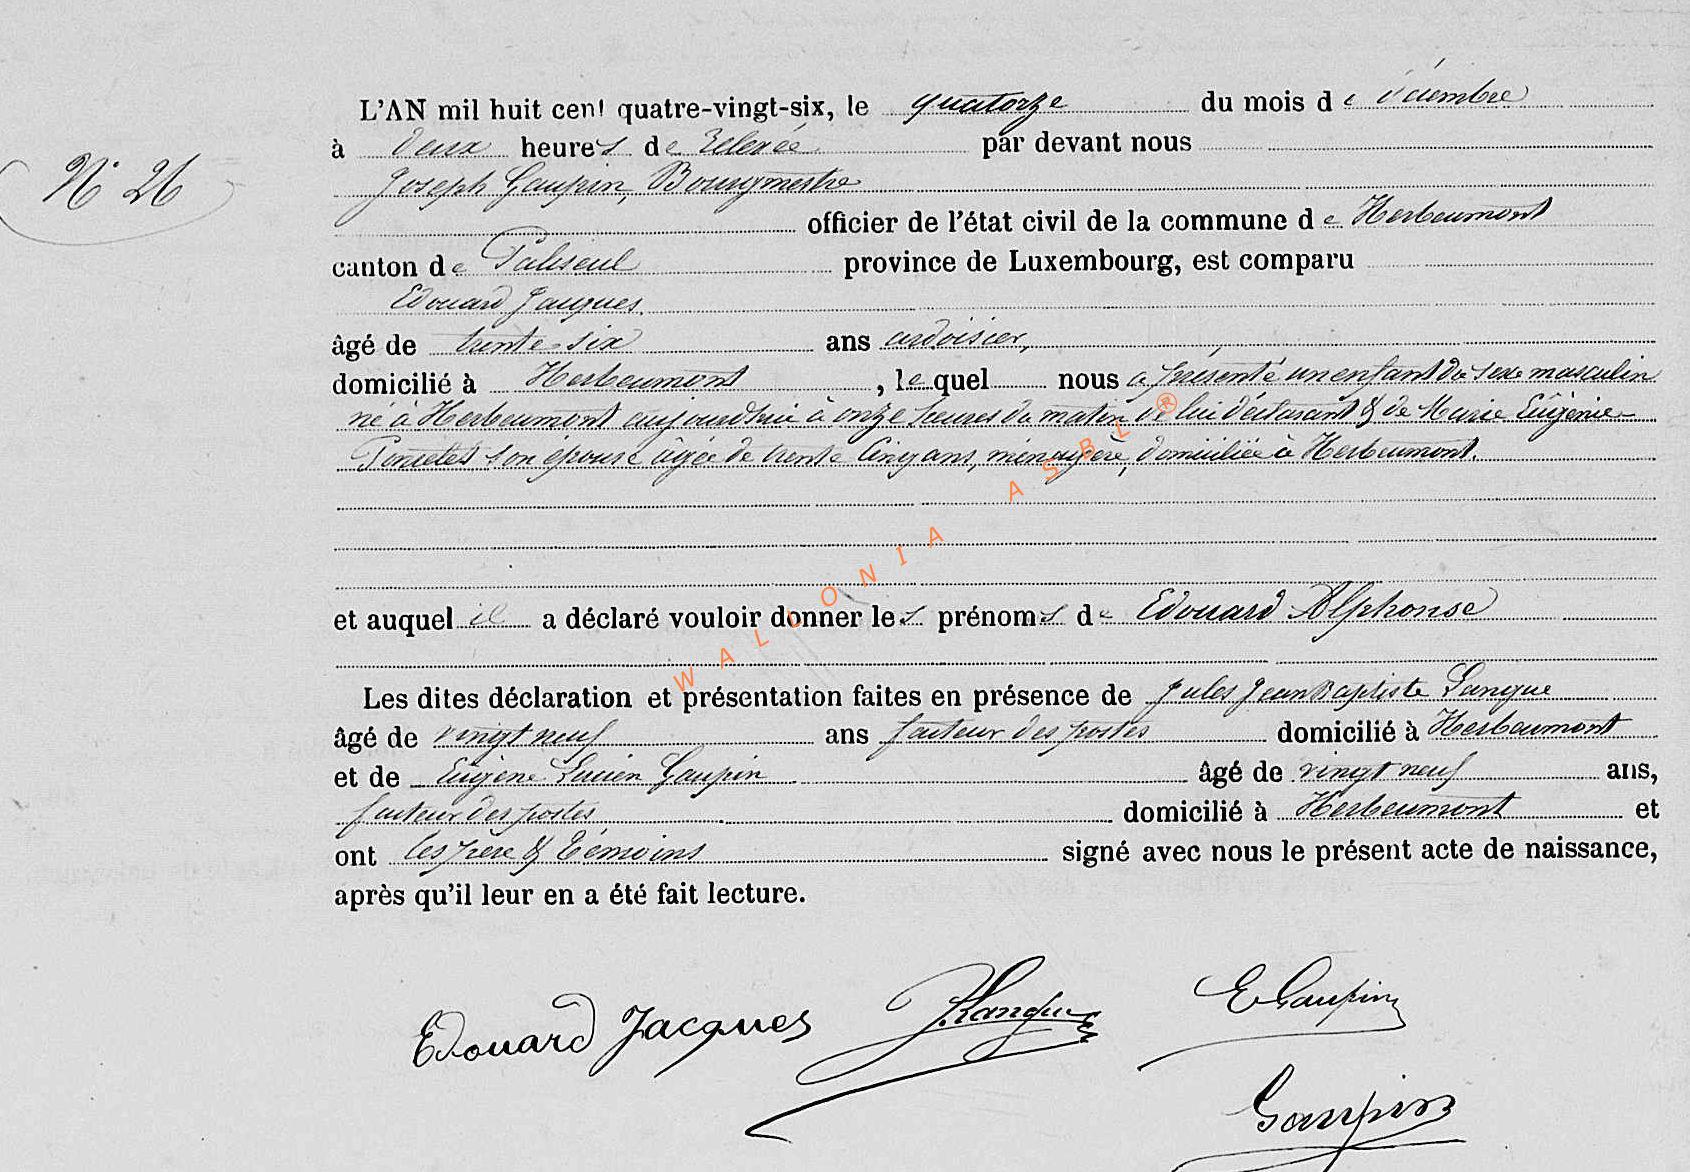 L'AN mil huit cent quatre-vingt-six, le quatorze du mois de décembre
à deux heures de relevée par devant nous
N° 26
Joseph Gaupin, Bourgmestre
officier de l'état civil de la commune de Herbeumont
canton de Paliseul province de Luxembourg, est comparu
Edouard Jacques
âgé de trente-six ans ardoisier,
domicilié à Herbeumont, lequel nous a présenté un enfant du sexe masculin
né à Herbeumont aujourd'hui à onze heures du matin de lui déclarant & de Marie Eugénie
Poncelet son épouse âgée de trente cinq ans, ménagère, domiciliée à Herbeumont.
et auquel il a déclaré vouloir donner les prénoms de Edouard Alphonse
Les dites déclaration et présentation faites en présence de Jules Jean Baptiste Langue
âgé de vingt neuf ans facteur des postes domicilié à Herbeumont
et de Eugène Lucien Gaupin âgé de vingt neuf ans,
facteur des postes domicilié à Herbeumont et
ont les père & témoins signé avec nous le présent acte de naissance,
après qu'il leur en a été fait lecture.
Edouard Jacques J Langue E Gaupin
Gaupin
WALLONIA ASBL ®